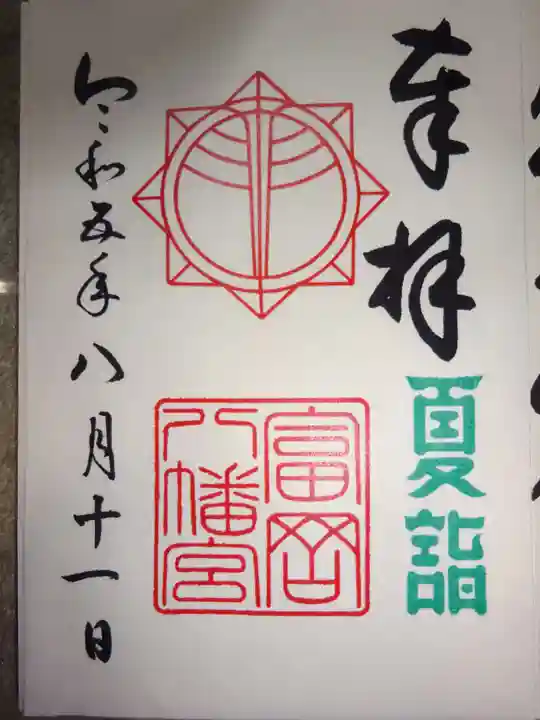 奉拝
夏詣
富岡
八幡宮
令和五年八月十一日